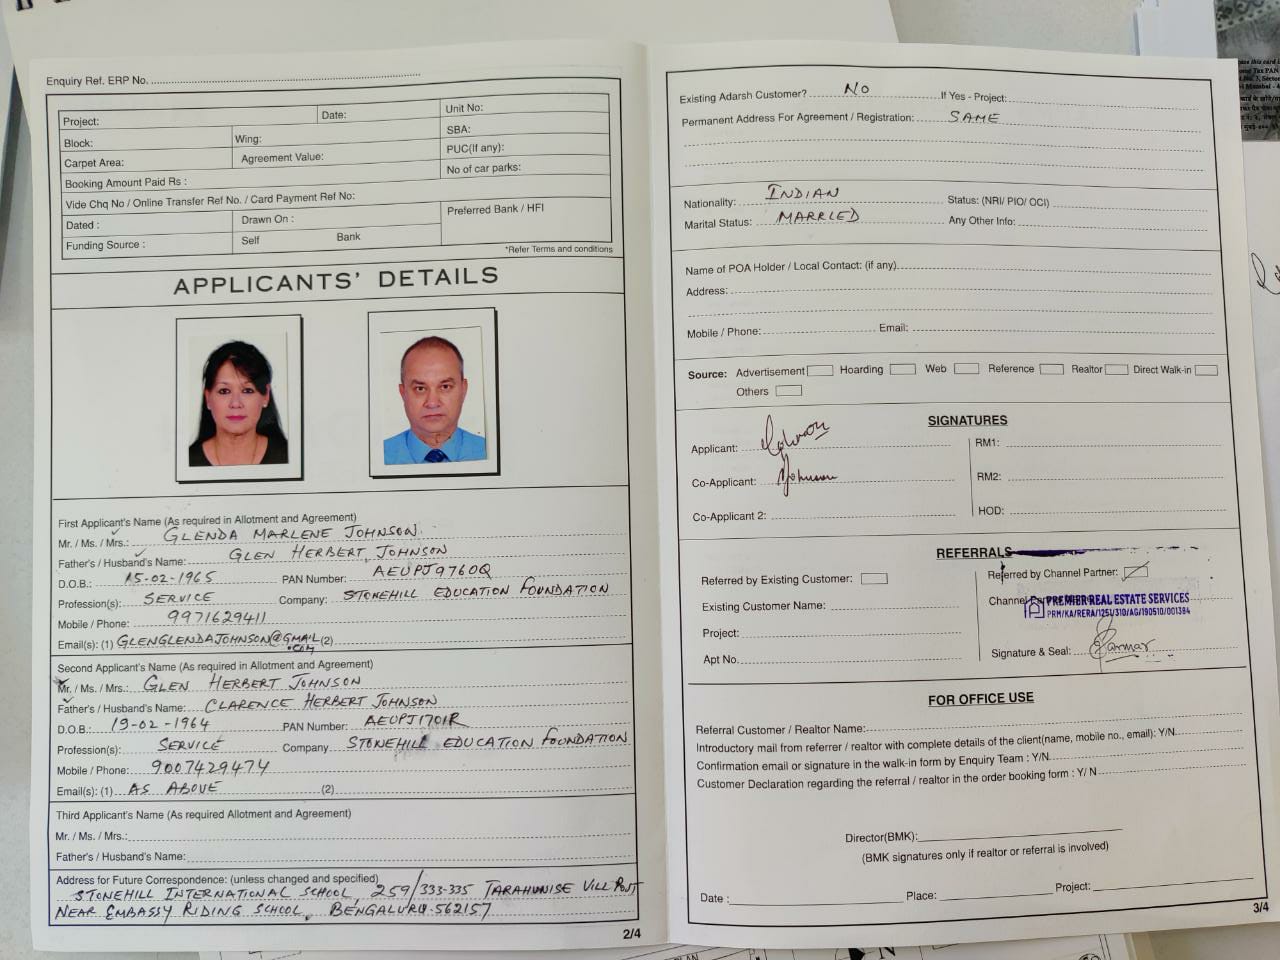 Enquiry Ref. ERP No.
Project: Date: Unit No:
Block: Wing: SBA:
Carpet Area: Agreement Value: PUC(if any):
Booking Amount Paid Rs : No of car parks:
Vide Chq No / Online Transfer Ref No. / Card Payment Ref No:
Dated : Drawn On : Preferred Bank / HFI
Funding Source : Self Bank
*Refer Terms and conditions
APPLICANTS' DETAILS
First Applicant's Name (As required in Allotment and Agreement)
Mr. / Ms. / Mrs.: GLENDA MARLENE JOHNSON.
Father's / Husband's Name: GLEN HERBERT JOHNSON
D.O.B.: 15-02-1965 PAN Number: AEUPJ9760Q
Profession(s): SERVICE Company: STONEHILL EDUCATION FOUNDATION
Mobile / Phone: 9971629411
Email(s): (1) GLENGLENDAJOHNSON@GMAIL.COM (2)
Second Applicant's Name (As required in Allotment and Agreement)
Mr. / Ms. / Mrs.: GLEN HERBERT JOHNSON
Father's / Husband's Name: CLARENCE HERBERT JOHNSON
D.O.B.: 19-02-1964 PAN Number: AEUPJ1701R
Profession(s): SERVICE Company STONEHILL EDUCATION FOUNDATION
Mobile / Phone: 9007429474
Email(s): (1) AS ABOVE (2)
Third Applicant's Name (As required Allotment and Agreement)
Mr. / Ms. / Mrs.:
Father's / Husband's Name:
Address for Future Correspondence: (unless changed and specified)
STONEHILL INTERNATIONAL SCHOOL, 259/333-335 TARAHUNISE VILL POST
NEAR EMBASSY RIDING SCHOOL, BENGALURU-562157
2/4
Existing Adarsh Customer? NO If Yes - Project:
Permanent Address For Agreement / Registration: SAME
Nationality: INDIAN Status: (NRI/ PIO/ OCI)
Marital Status: MARRIED Any Other Info:
Name of POA Holder / Local Contact: (if any)
Address:
Mobile / Phone: Email:
Source: Advertisement Hoarding Web Reference Realtor Direct Walk-in
Others
SIGNATURES
Applicant: RM1:
Co-Applicant: Johnson RM2:
Co-Applicant 2: HOD:
REFERRALS
Referred by Existing Customer: Referred by Channel Partner:
Existing Customer Name: Channel
PREMIER REAL ESTATE SERVICES
PRM/KA/RERA/1251/310/AG/190510/001384
Project:
Apt No. Signature & Seal: Parmar
FOR OFFICE USE
Referral Customer / Realtor Name:
Introductory mail from referrer / realtor with complete details of the client(name, mobile no., email): Y/N
Confirmation email or signature in the walk-in form by Enquiry Team : Y/N
Customer Declaration regarding the referral / realtor in the order booking form : Y/ N
Director(BMK):
(BMK signatures only if realtor or referral is involved)
Date : Place: Project:
3/4